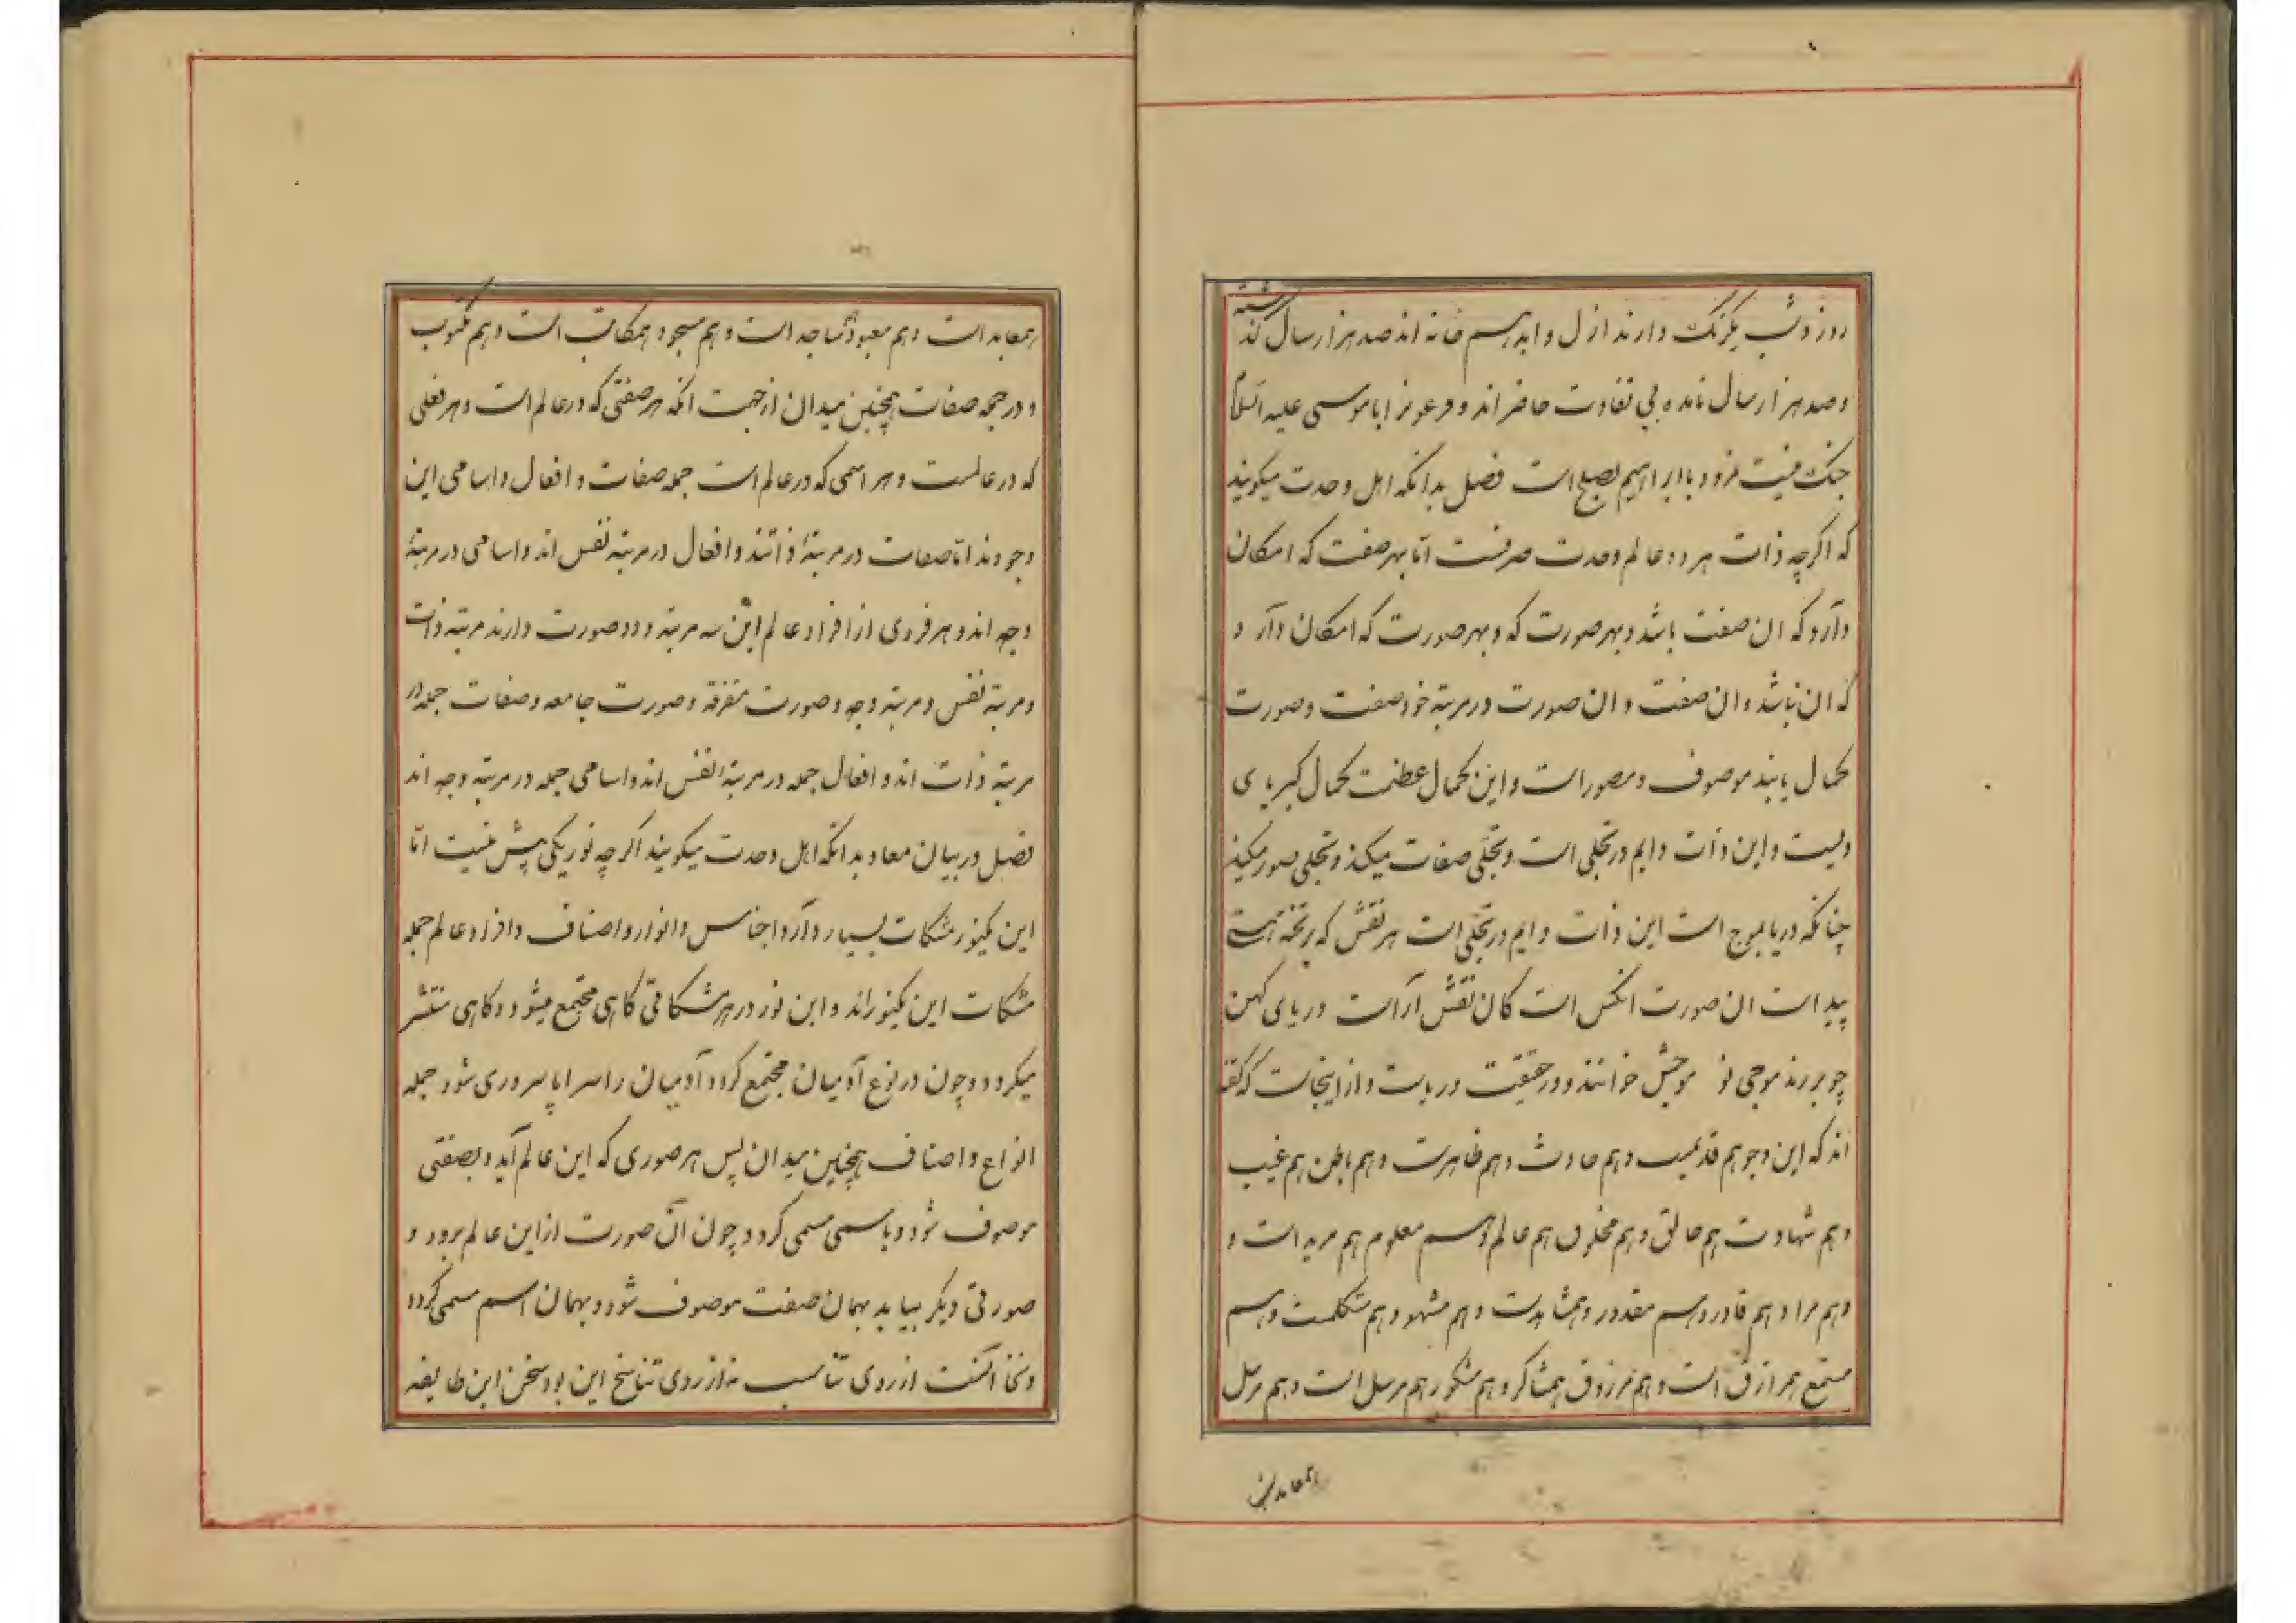 روز و شب یکرنک دارند ازل و ابد رسم خانه اند صد هزار سال کذشته
و صد هزار سال نامده بی تفاوت حاضر اند و فرعونرا با موسی علیه السلام
جنک نیست نمرود با ابراهیم بصلح است فصل بدانکه اهل وحدت میکویند
که اکرچه ذات هر دو عالم وحدت صرفست اما بهر صفت که امکان
دارد که ان صفت باشد و بهر صورت که و بهر صورت که امکان دارد
که ان باشد و ان صفت و ان صورت در مرتبه خود صفت و صورت
کمال یابند موصوف و مصور است و این کمال عظمت کمال کبریای
ویست و این ذات دایم در تجلی است و تجلی صفات میکند و تجلی صور میکند
چنانکه دریا بموج است این ذات دایم در تجلی است هر نقش که بر تخته هستی
پیداست ان صورت انکس است کان نقش آراست دریای کهن
چو بر زند موجی نو موجش خوانند و در حقیقت دریاست و از اینجاست که گفته
اند که این وجود هم قدیمست و هم حادث و هم ظاهرست و هم باطن هم غیب
و هم شهادت هم خالق و هم مخلوق هم عالم و هم معلوم هم مرید است و
و هم مراد و هم قادر و هم مقدور و هم شاهدست و هم مشهود و هم متکلمست و هم
مستمع هم رازق است و هم مرزوق هم شاکر و هم مشکور هم مرسل است و هم مرسل
هم عابد است
هم عابد است و هم معبود هم ساجد است و هم مسجود هم کاتب است و هم مکتوب
و در جمله صفات همچنین میدان از جهت انکه هر صفتی که در عالم است و هر فعلی
که در عالمست و هر اسمی که در عالم است جمله صفات و افعال و اسامی این
وجودند اما صفات در مرتبهٔ ذاتند و افعال در مرتبه نفس اند و اسامی در مرتبهٔ
وجه اند و هر فردی از افراد عالم این سه مرتبه و دو صورت دارند مرتبه ذات
و مرتبه نفس و مرتبه وجه و صورت متفرقه و صورت جامعه و صفات جمله در
مرتبه ذات اند و افعال جمله در مرتبهٔ نفس اند و اسامی جمله در مرتبه وجه اند
فصل در بیان معاد بدانکه اهل وحدت میکویند اکرچه نور یکی بیش نیست اما
این یکنور مشکات بسیار دارد اجناس و انوار و اصناف و افراد عالم جمله
مشکات این یکنوراند و این نور در هر مشکاتی کاهی مجتمع میشود و کاهی منتشر
میکردد و چون در نوع آدمیان مجتمع کردد آدمیان را سرایا پروری شود جمله
انواع و اصناف همچنین میدان پس هر صوری که این عالم آید و بصفتی
موصوف شود و باسمی مسمی کردد چون آن صورت از این عالم برود و
صورتی دیکر بیاید بهمان صفت موصوف شود و بهمان اسم مسمی کردد
از روی تناسب نه از روی تناسخ این بود سخن این طایفه